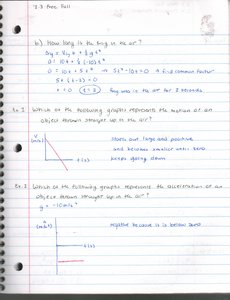 3.3 Free Fall
b) How long is the key in the air?
Δy = V₁y t + ½ g t²
0 = 10t + ½ (-10) t²
0 = 10t + 5t² → 5t² - 10t = 0 → find common factor
5t (t-2) = 0
t = 2 Key was in the air for 2 seconds
Ex. 1 Which of the following graphs represents the motion of an
object thrown straight up in the air?
V
(m/s)
starts out large and positive
and becomes smaller until zero
keeps going down
t(s)
Ex. 2 Which of the following graphs represents the acceleration of an
object thrown straight up in the air?
g = -10m/s²
negative because it is below zero
t(s)